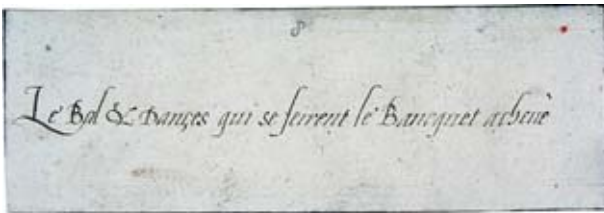 8
Le Bal & Dançes qui se feirent le Bancquet acheué